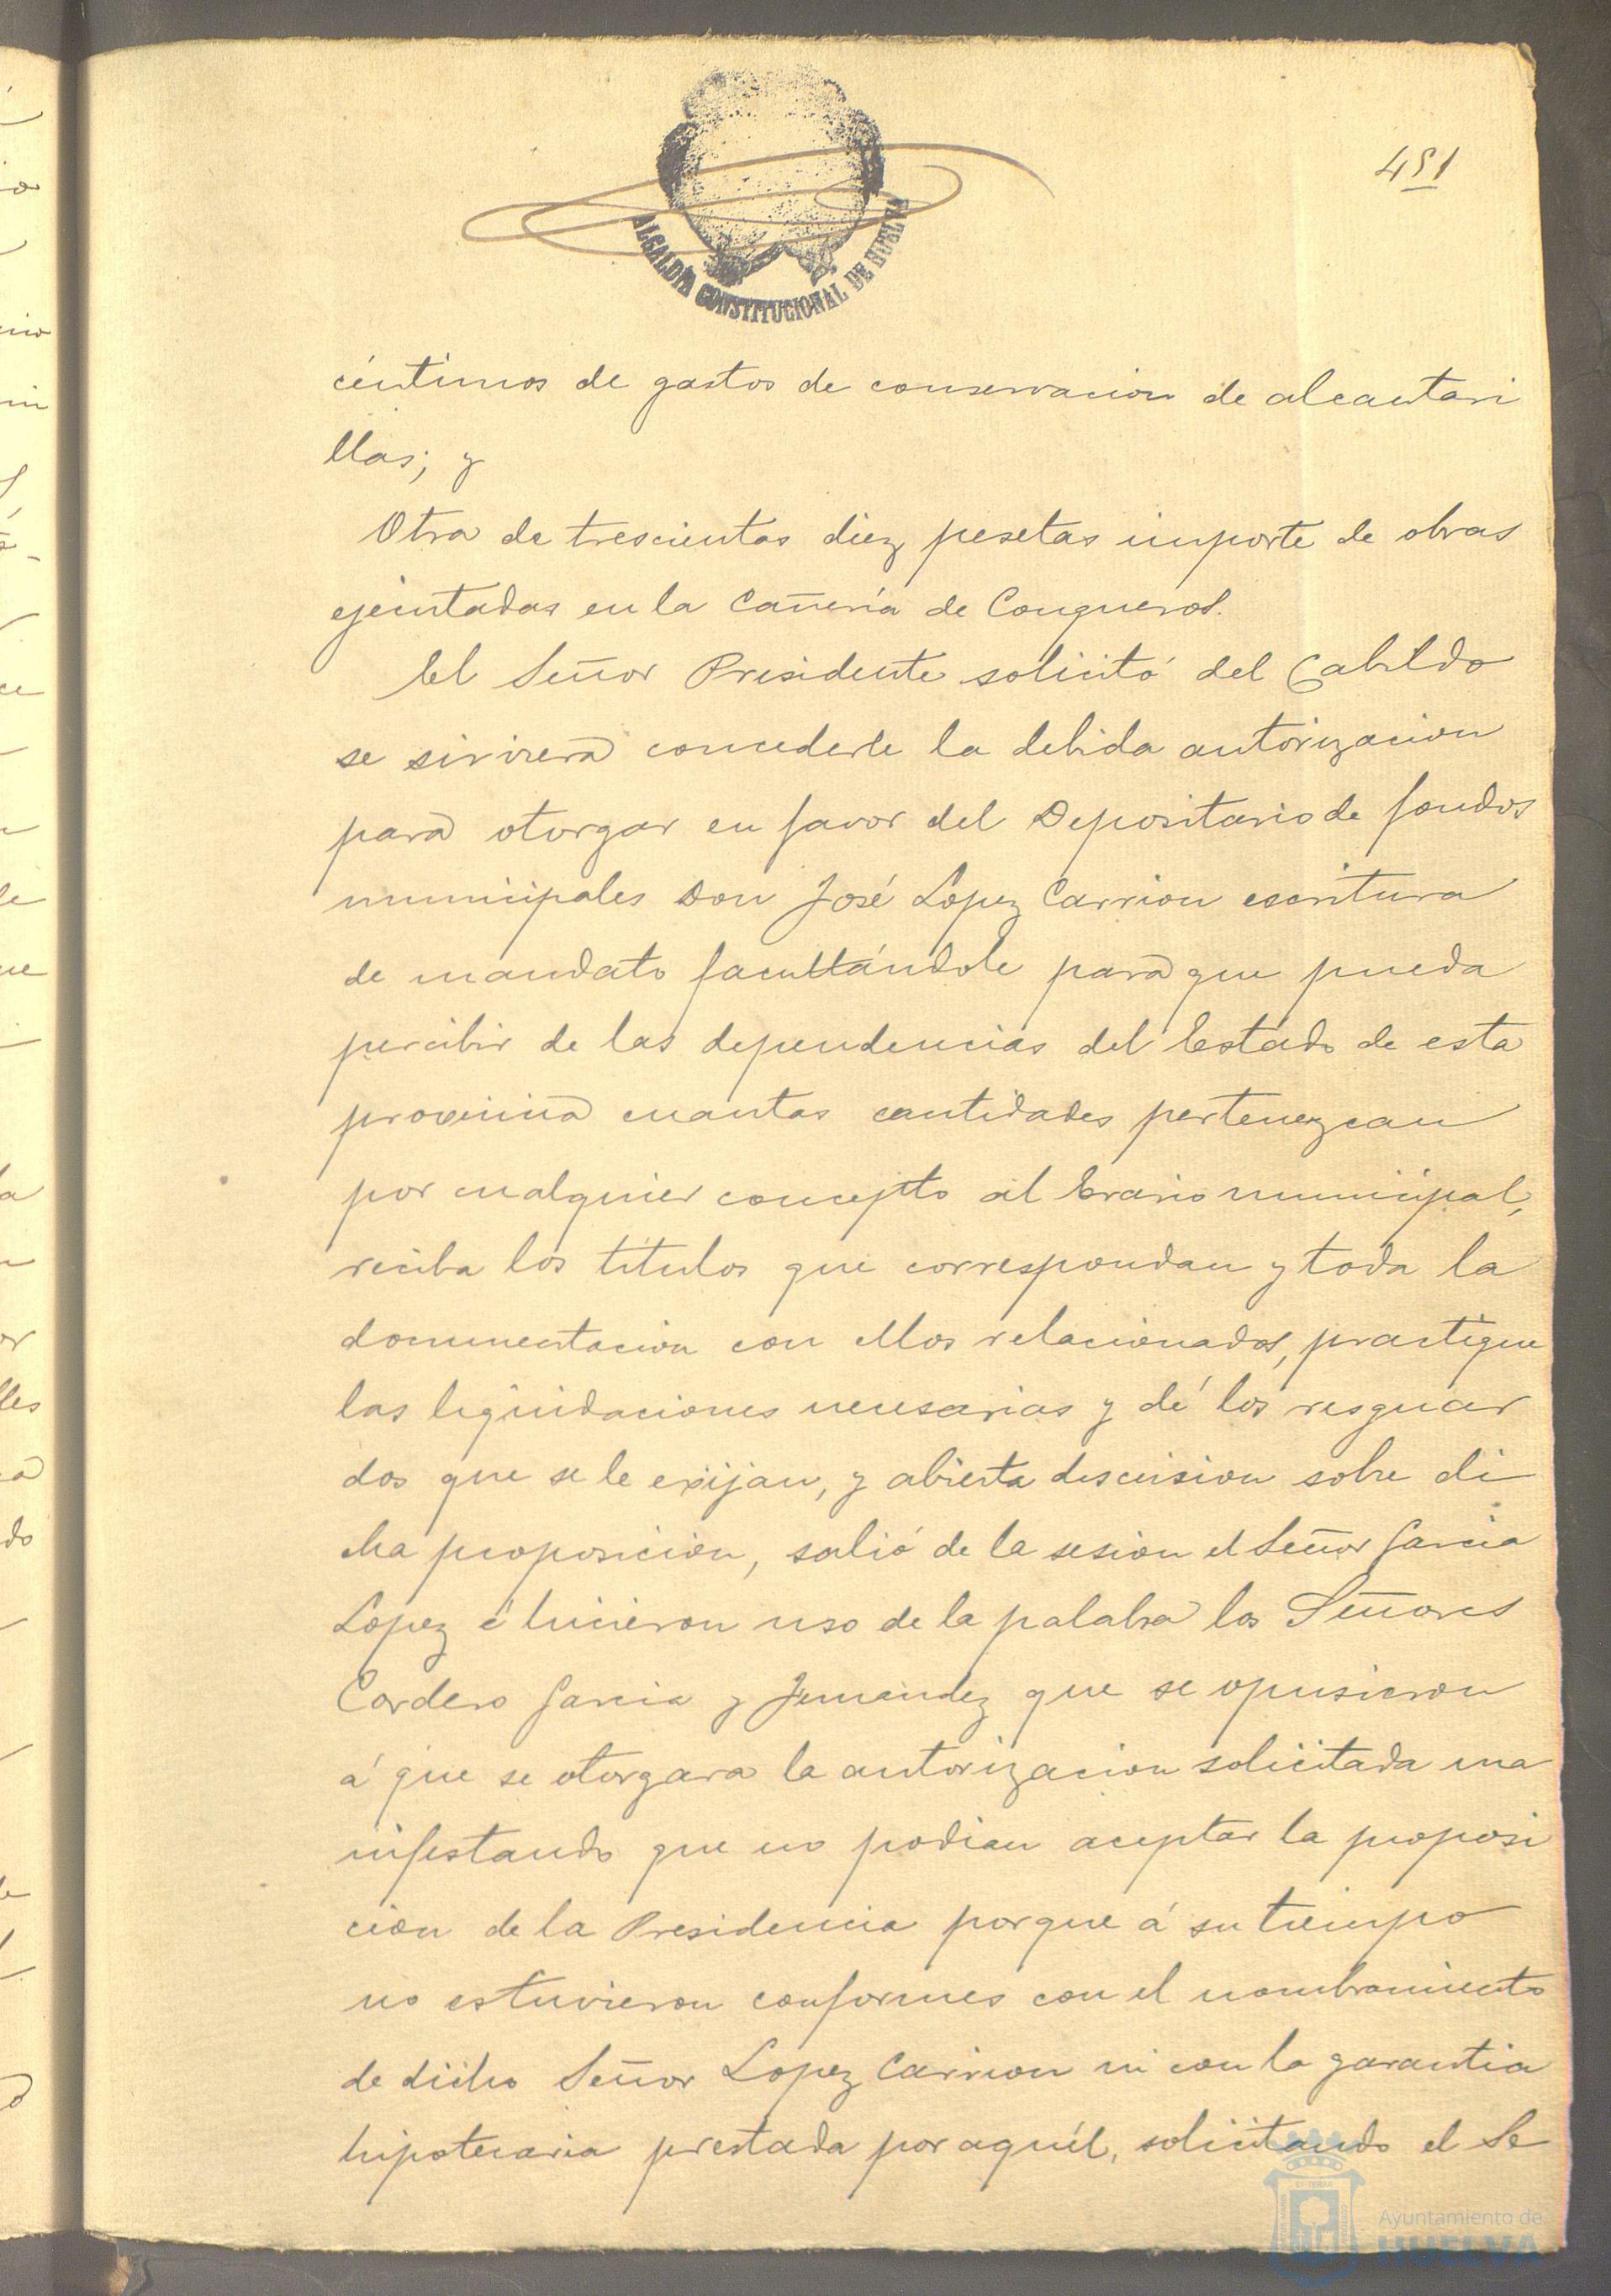 451
ALCALDÍA CONSTITUCIONAL DE HUELVA
céntimos de gastos de conservacion de alcantari
llas; y
Otra de trescientas diez pesetas importe de obras
ejecutadas en la Cañería de Conqueros.
El Señor Presidente solicitó del Cabildo
se sirviera concederle la debida autorizacion
para otorgar en favor del Depositario de fondos
municipales Don José Lopez Carrion escritura
de mandato facultándole para que pueda
percibir de las dependencias del Estado de esta
provincia cuantas cantidades pertenezcan
por cualquier concepto al Erario municipal,
reciba los títulos que correspondan y toda la
documentacion con ellos relacionados, practique
las liquidaciones necesarias y dé los resguar
dos que se le exijan, y abierta discusion sobre di
cha proposicion, salió de la sesion el Señor Garcia
Lopez é hicieron uso de la palabra los Señores
Cordero Garcia y que se opusieron
á que se otorgara la autorizacion solicitada ma
nifestando que no podian aceptar la proposi
cion de la Presidencia porque á su tiempo
no estuvieron conformes con el nombramiento
de dicho Señor Lopez Carrion ni con la garantia
hipotecaria prestada por aquél, solicitando el Se
Ayuntamiento de
HUELVA